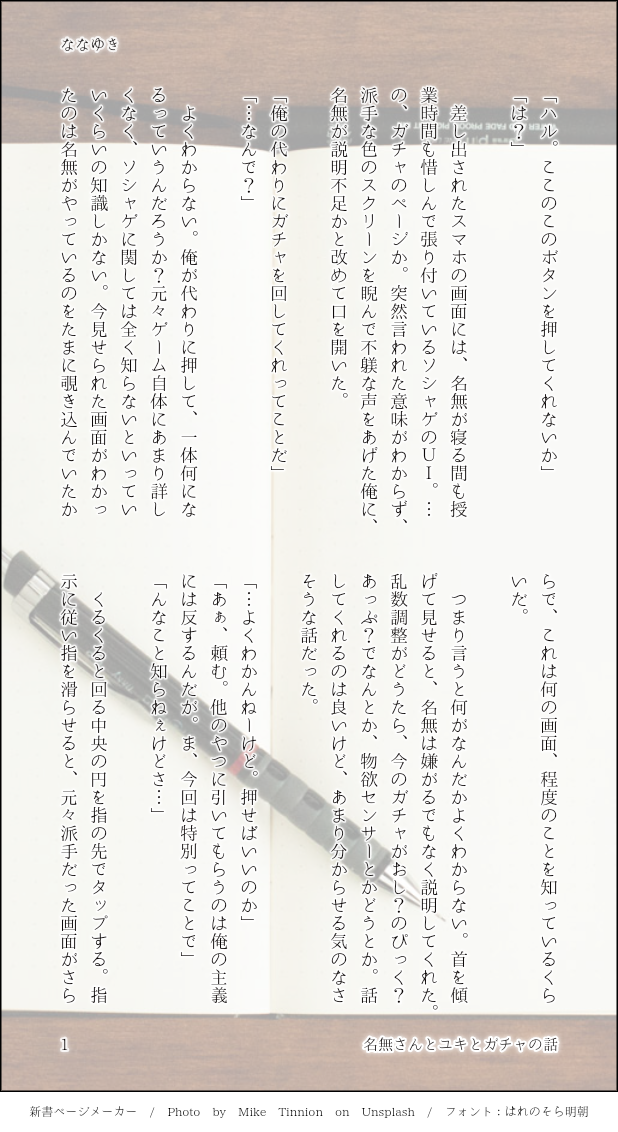 ななゆき
「ハル。ここのこのボタンを押してくれないか」
「は？」
　差し出されたスマホの画面には、名無が寝る間も授
業時間も惜しんで張り付いているソシャゲのＵＩ。…
の、ガチャのページか。突然言われた意味がわからず、
派手な色のスクリーンを睨んで不躾な声をあげた俺に、
名無が説明不足かと改めて口を開いた。
「俺の代わりにガチャを回してくれってことだ」
「…なんで？」
　よくわからない。俺が代わりに押して、一体何にな
るっていうんだろうか？元々ゲーム自体にあまり詳し
くなく、ソシャゲに関しては全く知らないといってい
いくらいの知識しかない。今見せられた画面がわかっ
たのは名無がやっているのをたまに覗き込んでいたか
らで、これは何の画面、程度のことを知っているくら
いだ。
　つまり言うと何がなんだかよくわからない。首を傾
げて見せると、名無は嫌がるでもなく説明してくれた。
乱数調整がどうたら、今のガチャがおし？のぴっく？
あっぷ？でなんとか、物欲センサーとかどうとか。話
してくれるのは良いけど、あまり分からせる気のなさ
そうな話だった。
「…よくわかんねーけど。押せばいいのか」
「あぁ、頼む。他のやつに引いてもらうのは俺の主義
には反するんだが。ま、今回は特別ってことで」
「んなこと知らねぇけどさ…」
　くるくると回る中央の円を指の先でタップする。指
示に従い指を滑らせると、元々派手だった画面がさら
名無さんとユキとガチャの話
1
新書ページメーカー　/　Photo　by　Mike　Tinnion　on　Unsplash　/　フォント：はれのそら明朝